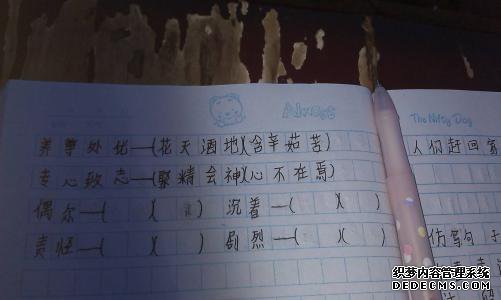 The Nifty Dog
养尊处优—(花天酒地)(含辛茹苦)
专心致志—(聚精会神)(心不在焉)
偶尔—( )( ) 沉着—( )( )
责怪—( )( ) 剧烈—( )( )
人们赶回家
仿写句子
织梦内容管理系统
DEDECMS.COM